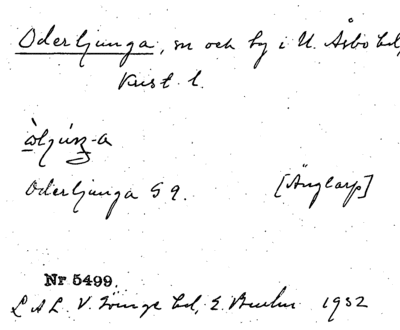 Oderljunga, sn och by i N. Åsbo hd,
Krist. l.
Oderljunga 59.	[Änglarp]
Nr 5499.
LAL V. Göinge hd, E. 1932